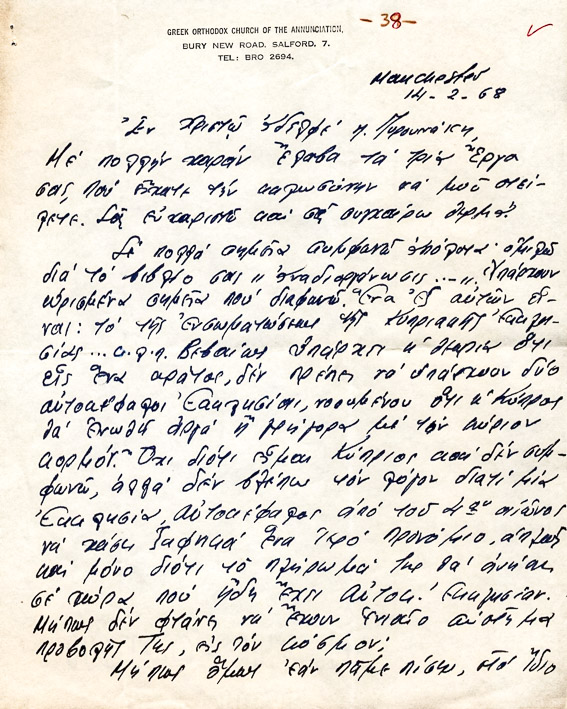 -38-
GREEK ORTHODOX CHURCH OF THE ANNUNCIATION,
BURY NEW ROAD, SALFORD. 7.
TEL: BRO 2694.
Manchester
14-2-68
Ἐν Χριστῷ ἀδελφέ κ. Πυρουνάκη,
Μέ πολλήν χαράν ἔλαβα τά τρία ἔργα
σας, πού εἴχατε τήν καλωσύνην νά μοῦ στεί-
λετε. Σᾶς εὐχαριστῶ καί σᾶς συγχαίρω θερμά!
Σέ πολλά σημεῖα συμφωνῶ ἀπόλυτα· ὁμιλῶ
διά τό βιβλίο σας „ἀναδιαρθρώσις...„. Ὑπάρχουν
ὡρισμένα σημεῖα πού διαφωνῶ. Ἕνα ἐξ αὐτῶν εἶ-
ναι: τό τῆς Ἐνσωματώσεως τῆς Κυπριακῆς Ἐκκλη-
σίας... κ.λ.π. Βεβαίως ὑπάρχει ἡ θεωρία ὅτι
εἰς ἕνα κράτος, δέν πρέπει νά ὑπάρχουν δύο
αὐτοκέφαλοι Ἐκκλησίαι, νοουμένου ὅτι ἡ Κύπρος
θά ἑνωθῇ ἀργά ἤ γρήγορα μέ τόν κύριον
κορμόν. Ὄχι διότι εἶμαι Κύπριος καί δέν συμ-
φωνῶ, ἀλλά δέν βλέπω τόν λόγον διατί μία
Ἐκκλησία, Αὐτοκέφαλος ἀπό τοῦ 4ου αἰῶνος
νά χάσῃ ξαφνικά ἕνα ἱερό προνόμιο, ἁπλῶς
καί μόνο διότι τό πλήρωμά της θά ἀνήκῃ
σέ χώρα πού ἤδη ἔχει Αὐτοκ. Ἐκκλησίαν.
Μήπως δέν φτάνει νά ἔχουν ἑνιαῖο σύστημα
προβολῆς της, εἰς τόν κόσμον;
Μήπως ὅμως ἐάν πᾶμε πίσω, στό ἴδιο